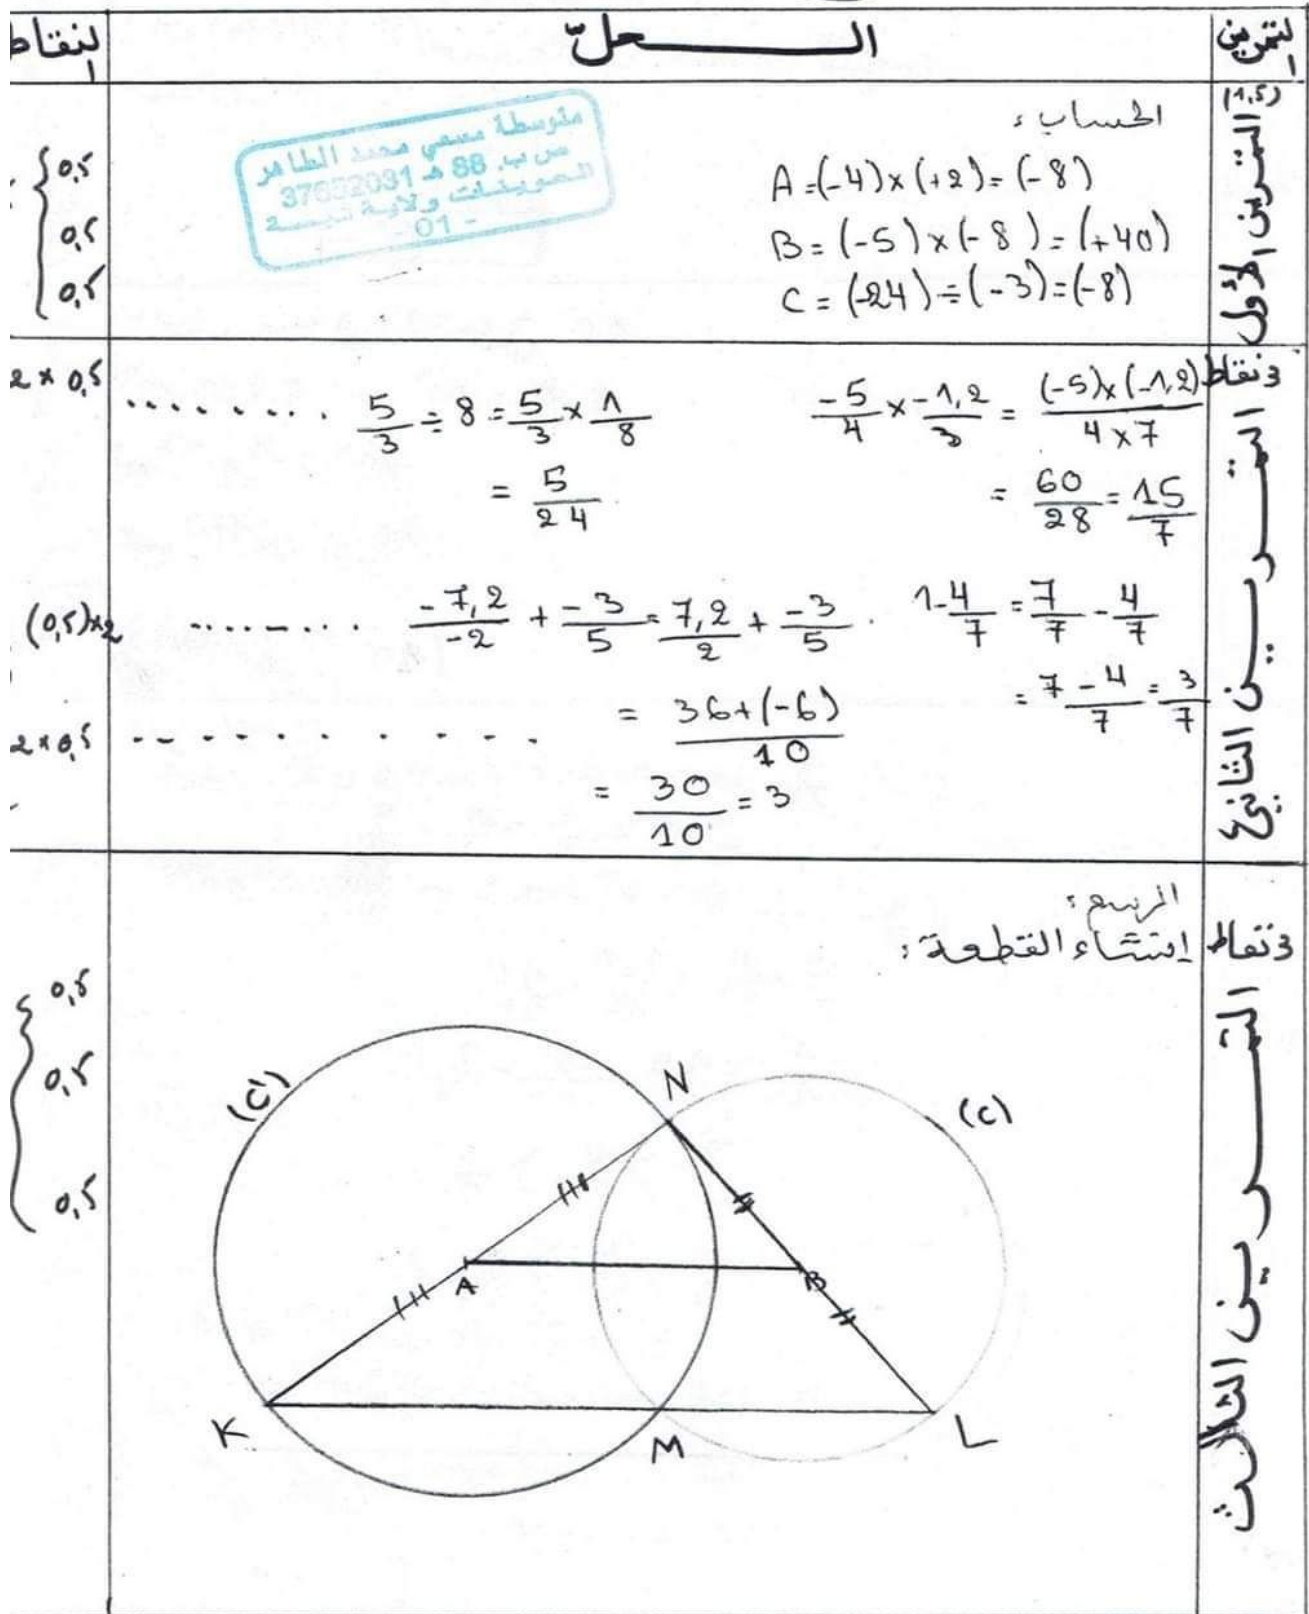 التمرين
الحلّ
النقاط
(1,5)
التمرين الأول
الحساب :
A = (-4) × (+2) = (-8)
B = (-5) × (-8) = (+40)
C = (-24) ÷ (-3) = (-8)
0,5
0,5
0,5
متوسطة مسعي محمد الطاهر
ص ب. 88 هـ 37652031
العوينات ولاية تبسة
- 01 -
3 نقاط
التمرين الثاني
-5/4 × -1,2/3 = (-5)×(-1,2)/4×7
= 60/28 = 15/7
5/3 ÷ 8 = 5/3 × 1/8
= 5/24
2 × 0,5
1 - 4/7 = 7/7 - 4/7
= 7-4/7 = 3/7
-7,2/-2 + -3/5 = 7,2/2 + -3/5
= 36+(-6)/10
= 30/10 = 3
(0,5)×2
2 × 0,5
3 نقاط
التمرين الثالث
الرسم :
إنشاء القطعة :
0,5
0,5
0,5
(C')
N
(C)
A
B
K
M
L